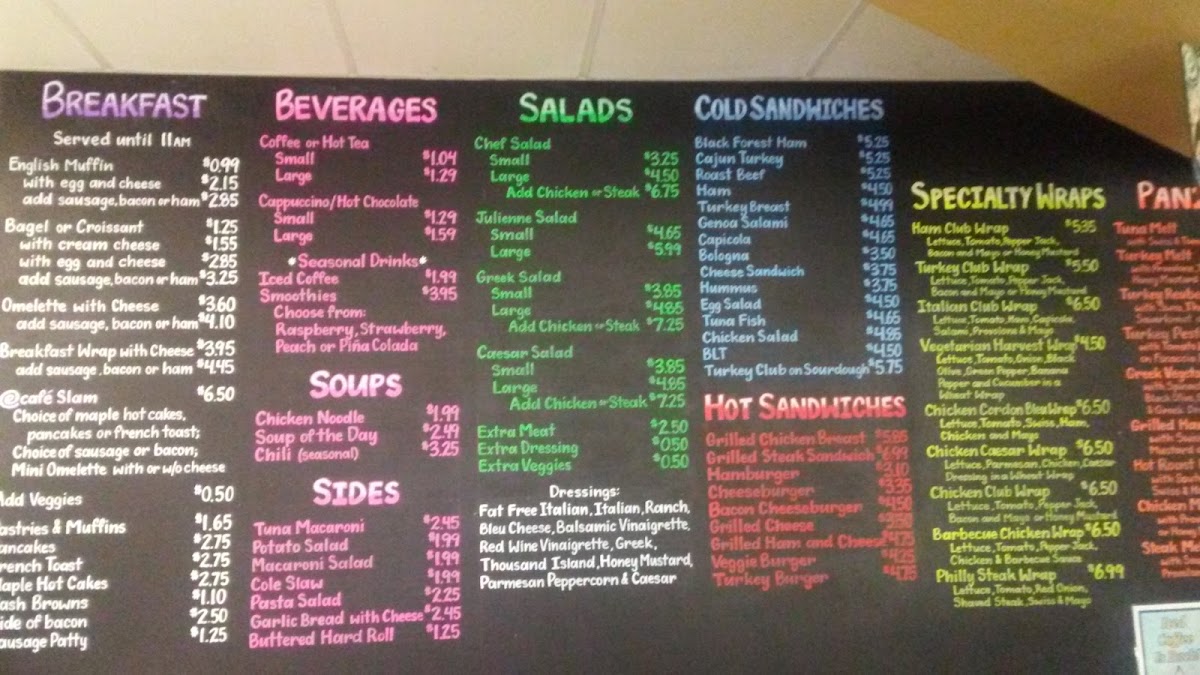 BREAKFAST
Served until 11AM
English Muffin $0.99
with egg and cheese $2.15
add sausage, bacon or ham $2.85
Bagel or Croissant $1.25
with cream cheese $1.55
with egg and cheese $2.85
add sausage, bacon or ham $3.25
Omelette with Cheese $3.60
add sausage, bacon or ham $4.10
Breakfast Wrap with Cheese $3.95
add sausage, bacon or ham $4.45
@café Slam $6.50
Choice of maple hot cakes,
pancakes or french toast;
Choice of sausage or bacon;
Mini Omelette with or w/o cheese
Add Veggies $0.50
astries & Muffins $1.65
ancakes $2.75
rench Toast $2.75
aple Hot Cakes $2.75
ash Browns $1.10
ide of bacon $2.50
ausage Patty $1.25
BEVERAGES
Coffee or Hot Tea
Small $1.04
Large $1.29
Cappuccino/Hot Chocolate
Small $1.29
Large $1.59
*Seasonal Drinks*
Iced Coffee $1.99
Smoothies $3.95
Choose from:
Raspberry, Strawberry,
Peach or Piña Colada
SOUPS
Chicken Noodle $1.99
Soup of the Day $2.49
Chili (seasonal) $3.25
SIDES
Tuna Macaroni $2.45
Potato Salad $1.99
Macaroni Salad $1.99
Cole Slaw $1.99
Pasta Salad $2.25
Garlic Bread with Cheese $2.45
Buttered Hard Roll $1.25
SALADS
Chef Salad
Small $3.25
Large $4.50
Add Chicken or Steak $6.75
Julienne Salad
Small $4.65
Large $5.99
Greek Salad
Small $3.85
Large $4.85
Add Chicken or Steak $7.25
Caesar Salad
Small $3.85
Large $4.85
Add Chicken or Steak $7.25
Extra Meat $2.50
Extra Dressing $0.50
Extra Veggies $0.50
Dressings:
Fat Free Italian, Italian, Ranch,
Bleu Cheese, Balsamic Vinaigrette,
Red Wine Vinaigrette, Greek,
Thousand Island, Honey Mustard,
Parmesan Peppercorn & Caesar
COLD SANDWICHES
Black Forest Ham $5.25
Cajun Turkey $5.25
Roast Beef $5.25
Ham $4.50
Turkey Breast $4.99
Genoa Salami $4.65
Capicola $4.65
Bologna $3.50
Cheese Sandwich $3.75
Hummus $3.75
Egg Salad $4.50
Tuna Fish $4.65
Chicken Salad $4.85
BLT $4.50
Turkey Club on Sourdough $5.75
HOT SANDWICHES
Grilled Chicken Breast $5.85
Grilled Steak Sandwich $6.99
Hamburger $3.10
Cheeseburger $3.35
Bacon Cheeseburger $4.50
Grilled Cheese $3.50
Grilled Ham and Cheese $4.75
Veggie Burger $4.25
Turkey Burger $4.75
SPECIALTY WRAPS
Ham Club Wrap $5.35
Lettuce, Tomato, Pepper Jack,
Bacon and Mayo or Honey Mustard
Turkey Club Wrap $5.50
Lettuce, Tomato, Pepper Jack,
Bacon and Mayo or Honey Mustard
Italian Club Wrap $6.50
Lettuce, Tomato, Ham, Capicola,
Salami, Provolone & Mayo
Vegetarian Harvest Wrap $4.50
Lettuce, Tomato, Onion, Black
Olive, Green Pepper, Banana
Pepper and Cucumber in a
Wheat Wrap
Chicken Cordon Bleu Wrap $6.50
Lettuce, Tomato, Swiss, Ham,
Chicken and Mayo
Chicken Caesar Wrap $6.50
Lettuce, Parmesan, Chicken, Caesar
Dressing in a Wheat Wrap
Chicken Club Wrap $6.50
Lettuce, Tomato, Pepper Jack,
Bacon and Mayo or Honey Mustard
Barbecue Chicken Wrap $6.50
Lettuce, Tomato, Pepper Jack,
Chicken & Barbecue Sauce
Philly Steak Wrap $6.99
Lettuce, Tomato, Red Onion,
Shaved Steak, Swiss & Mayo
PAN
Tuna Melt
Turkey Melt
Turkey
Turkey
Greek
Grilled
Hot Roast
Chicken
Steak